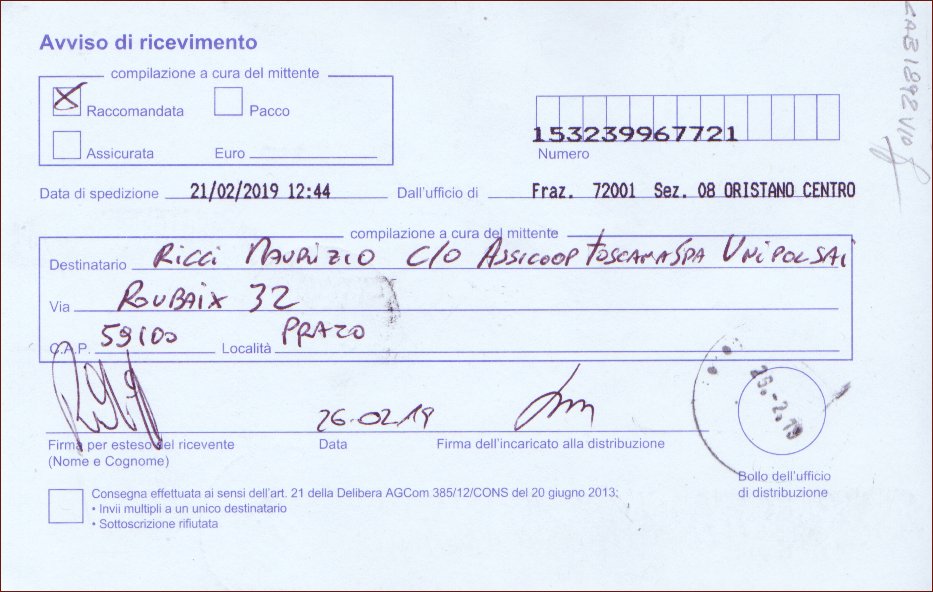 Avviso di ricevimento
compilazione a cura del mittente
Raccomandata Pacco
Assicurata Euro
153239967721
Numero
Data di spedizione 21/02/2019 12:44 Dall'ufficio di Fraz. 72001 Sez. 08 ORISTANO CENTRO
compilazione a cura del mittente
Destinatario RICCI MAURIZIO C/O ASSICOOP TOSCANA SPA UNIPOLSAI
Via ROUBAIX 32
C.A.P. 59100 Località PRATO
26.02.19
Firma per esteso del ricevente Data Firma dell'incaricato alla distribuzione
(Nome e Cognome)
Bollo dell'ufficio
di distribuzione
Consegna effettuata ai sensi dell'art. 21 della Delibera AGCom 385/12/CONS del 20 giugno 2013;
• Invii multipli a un unico destinatario
• Sottoscrizione rifiutata